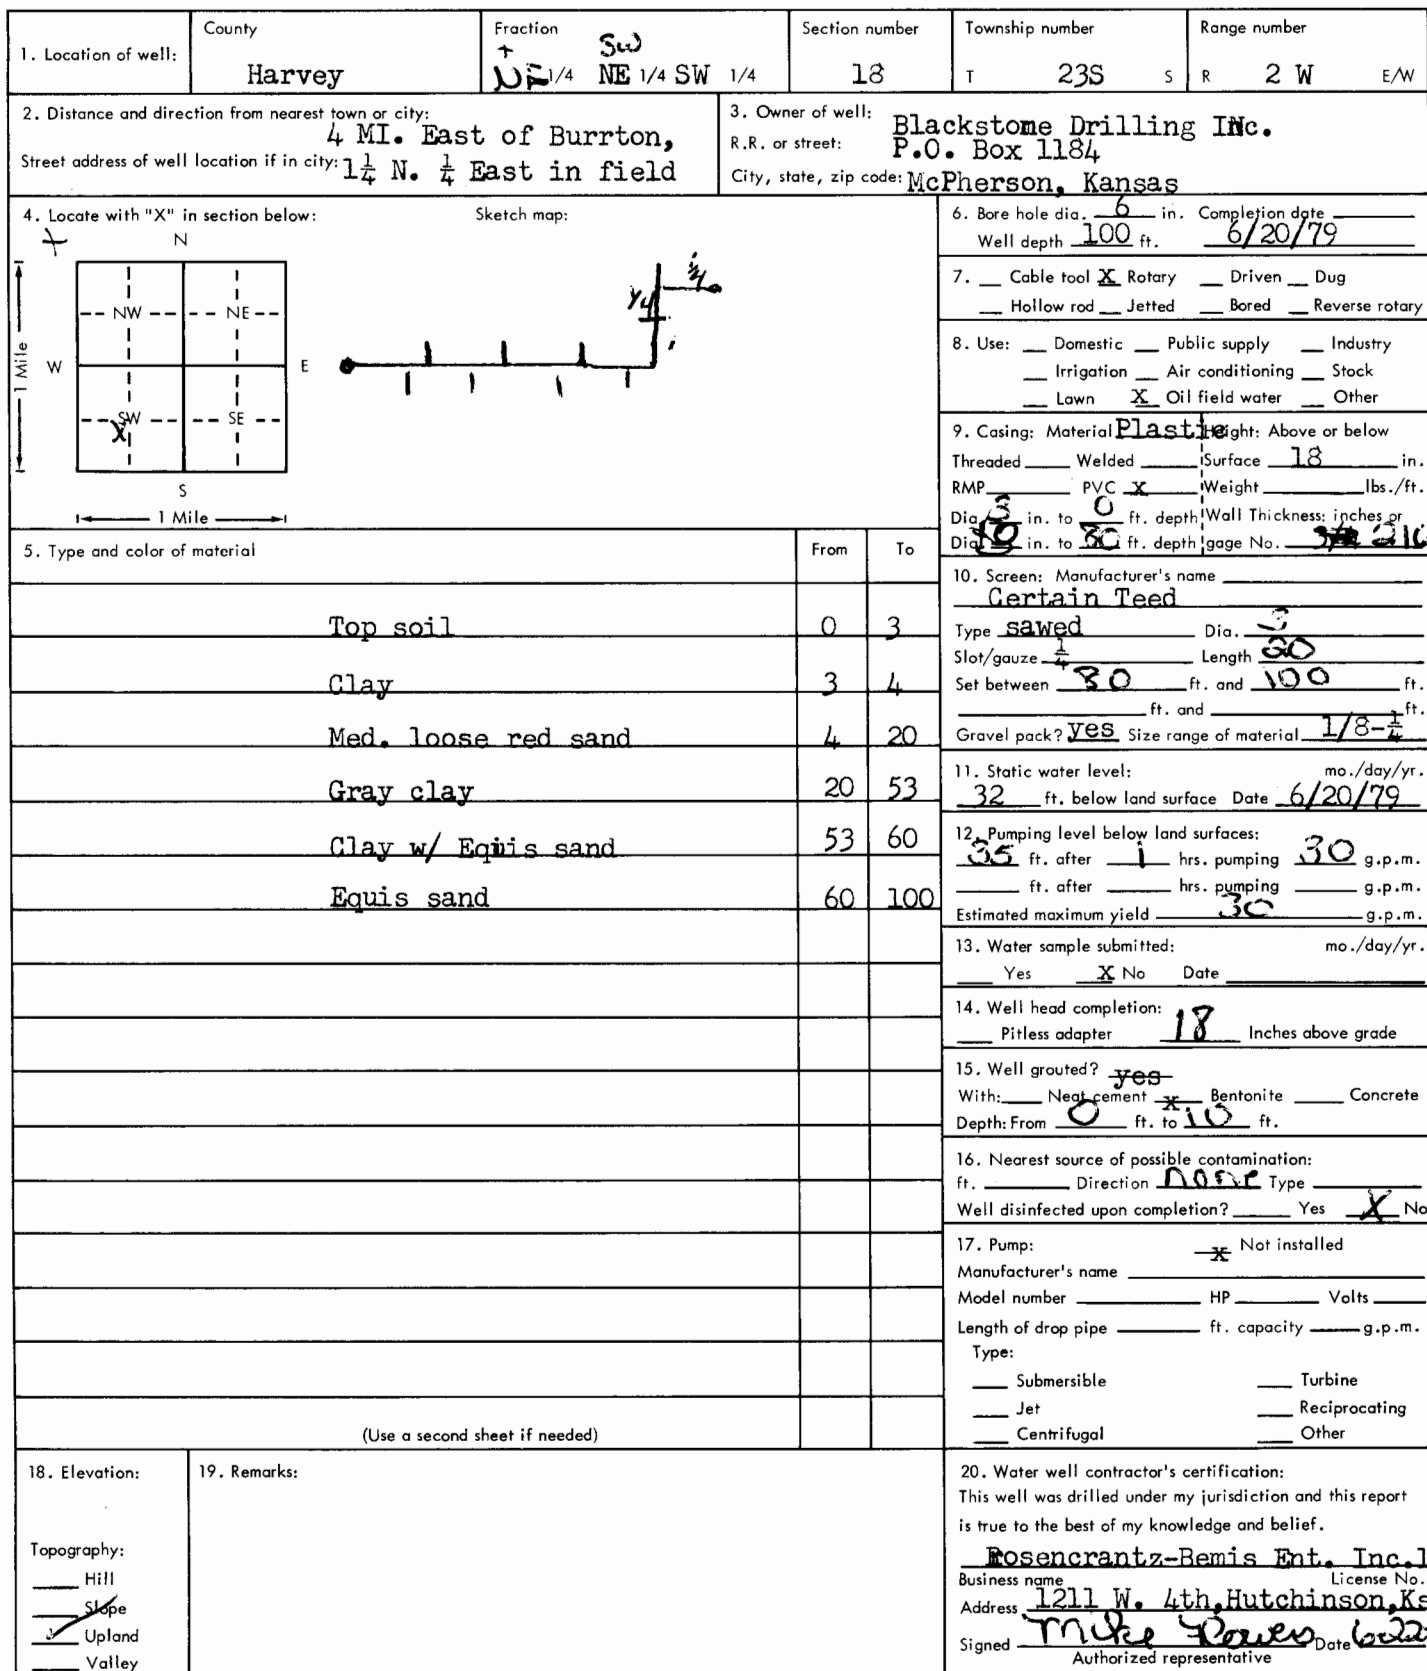 1. Location of well:
County
Harvey
Fraction
SW
NE 1/4 NE 1/4 SW 1/4
Section number
18
Township number
T 23S S
Range number
R 2 W E/W
2. Distance and direction from nearest town or city:
4 MI. East of Burrton,
Street address of well location if in city: 1 1/4 N. 1/4 East in field
3. Owner of well: Blackstome Drilling INc.
R.R. or street: P.O. Box 1184
City, state, zip code: McPherson, Kansas
4. Locate with "X" in section below:
Sketch map:
N
NW NE
W E
X SW SE
S
1 Mile
1 Mile
1/4
1/4
1
5. Type and color of material From To
Top soil 0 3
Clay 3 4
Med. loose red sand 4 20
Gray clay 20 53
Clay w/ Equis sand 53 60
Equis sand 60 100
(Use a second sheet if needed)
6. Bore hole dia. 6 in. Completion date
Well depth 100 ft. 6/20/79
7. Cable tool X Rotary Driven Dug
Hollow rod Jetted Bored Reverse rotary
8. Use: Domestic Public supply Industry
Irrigation Air conditioning Stock
Lawn X Oil field water Other
9. Casing: Material Plastic Height: Above or below
Threaded Welded Surface 18 in.
RMP PVC X Weight lbs./ft.
Dia. 3 in. to 0 ft. depth Wall Thickness: inches or
Dia. in. to 80 ft. depth gage No. 216
10. Screen: Manufacturer's name
Certain Teed
Type sawed Dia. 3
Slot/gauze 1/4 Length 20
Set between 80 ft. and 100 ft.
ft. and ft.
Gravel pack? yes Size range of material 1/8-1/4
11. Static water level: mo./day/yr.
32 ft. below land surface Date 6/20/79
12. Pumping level below land surfaces:
35 ft. after 1 hrs. pumping 30 g.p.m.
ft. after hrs. pumping g.p.m.
Estimated maximum yield 30 g.p.m.
13. Water sample submitted: mo./day/yr.
Yes X No Date
14. Well head completion:
Pitless adapter 18 Inches above grade
15. Well grouted? yes
With: Neat cement x Bentonite Concrete
Depth: From 0 ft. to 10 ft.
16. Nearest source of possible contamination:
ft. Direction none Type
Well disinfected upon completion? Yes X No
17. Pump: x Not installed
Manufacturer's name
Model number HP Volts
Length of drop pipe ft. capacity g.p.m.
Type:
Submersible Turbine
Jet Reciprocating
Centrifugal Other
18. Elevation:
Topography:
Hill
Slope
Upland
Valley
19. Remarks:
20. Water well contractor's certification:
This well was drilled under my jurisdiction and this report
is true to the best of my knowledge and belief.
Rosencrantz-Bemis Ent. Inc.1
Business name License No.
Address 1211 W. 4th,Hutchinson,Ks
Signed Mike Date 6-22
Authorized representative